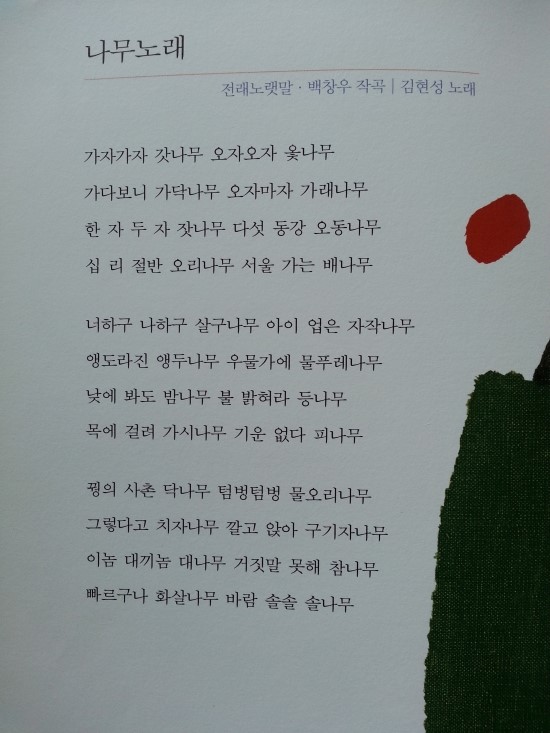 나무노래
전래노랫말 · 백창우 작곡 | 김현성 노래
가자가자 갓나무 오자오자 옻나무
가다보니 가닥나무 오자마자 가래나무
한 자 두 자 잣나무 다섯 동강 오동나무
십 리 절반 오리나무 서울 가는 배나무
너하구 나하구 살구나무 아이 업은 자작나무
앵도라진 앵두나무 우물가에 물푸레나무
낮에 봐도 밤나무 불 밝혀라 등나무
목에 걸려 가시나무 기운 없다 피나무
꿩의 사촌 닥나무 텀벙텀벙 물오리나무
그렇다고 치자나무 깔고 앉아 구기자나무
이놈 대끼놈 대나무 거짓말 못해 참나무
빠르구나 화살나무 바람 솔솔 솔나무